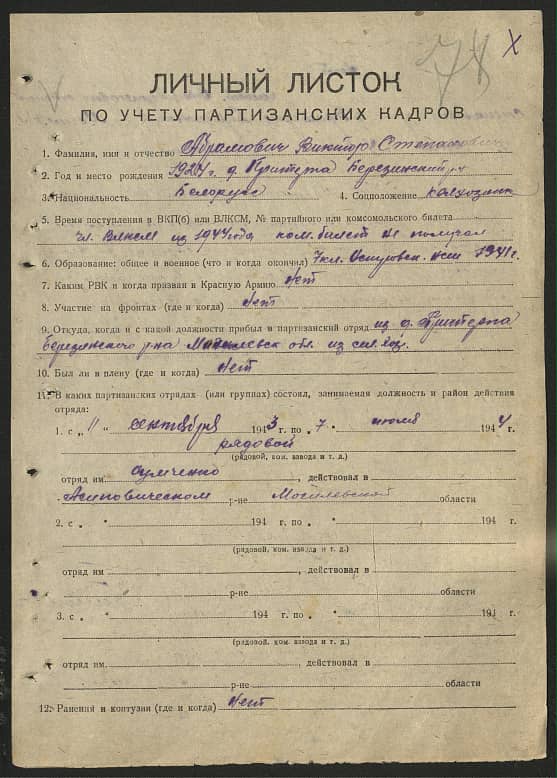 78 X
ЛИЧНЫЙ ЛИСТОК
ПО УЧЕТУ ПАРТИЗАНСКИХ КАДРОВ
1. Фамилия, имя и отчество Абрамович Виктор Степанович
2. Год и место рождения 1927г. д. Притерпа Березинский р.
3. Национальность Белорус 4. Соцположение колхозник
5. Время поступления в ВКП(б) или ВЛКСМ, № партийного или комсомольского билета
чл. Влксм из 1944 года ком. билет не получал
6. Образование: общее и военное (что и когда окончил) 7кл. 1941г.
7. Каким РВК и когда призван в Красную Армию Нет
8. Участие на фронтах (где и когда) Нет
9. Откуда, когда и с какой должности прибыл в партизанский отряд из д. Притерпа
Березинского р-на Могилевск обл. из
10. Был ли в плену (где и когда) Нет
11. В каких партизанских отрядах (или группах) состоял, занимаемая должность и район действия
отряда:
1. с „ 11 " сентября 1943 г. по „ 7 " июля 1944 г.
рядовой
(рядовой, ком. взвода и т. д.)
отряд им Сумченко, действовал в
Асиповическом р-не Могилевской области
2. с „ " 194 г. по „ " 194 г.
(рядовой, ком. взвода и т. д.)
отряд им , действовал в
р-не области
3. с „ " 194 г. по „ " 194 г.
(рядовой, ком. взвода и т. д.)
отряд им , действовал в
р-не области
12. Ранения и контузии (где и когда) Нет